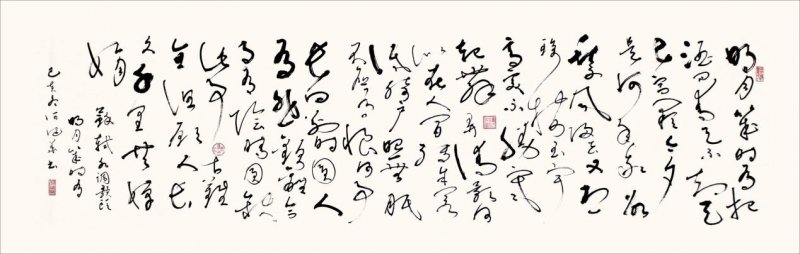 明月幾時有把
酒問青天不知天
上宮闕今夕
是何年我欲
乘風歸去又恐
瓊樓玉宇
高處不勝寒
起舞弄清影何
似在人間轉朱閣
低綺戶照無眠
不應有恨何事
長向別時圓人
有悲歡離合月
有陰晴圓缺
此事古難
全但願人長
久千里共嬋
娟
蘇軾水調歌頭
明月幾時有
己亥冬 書